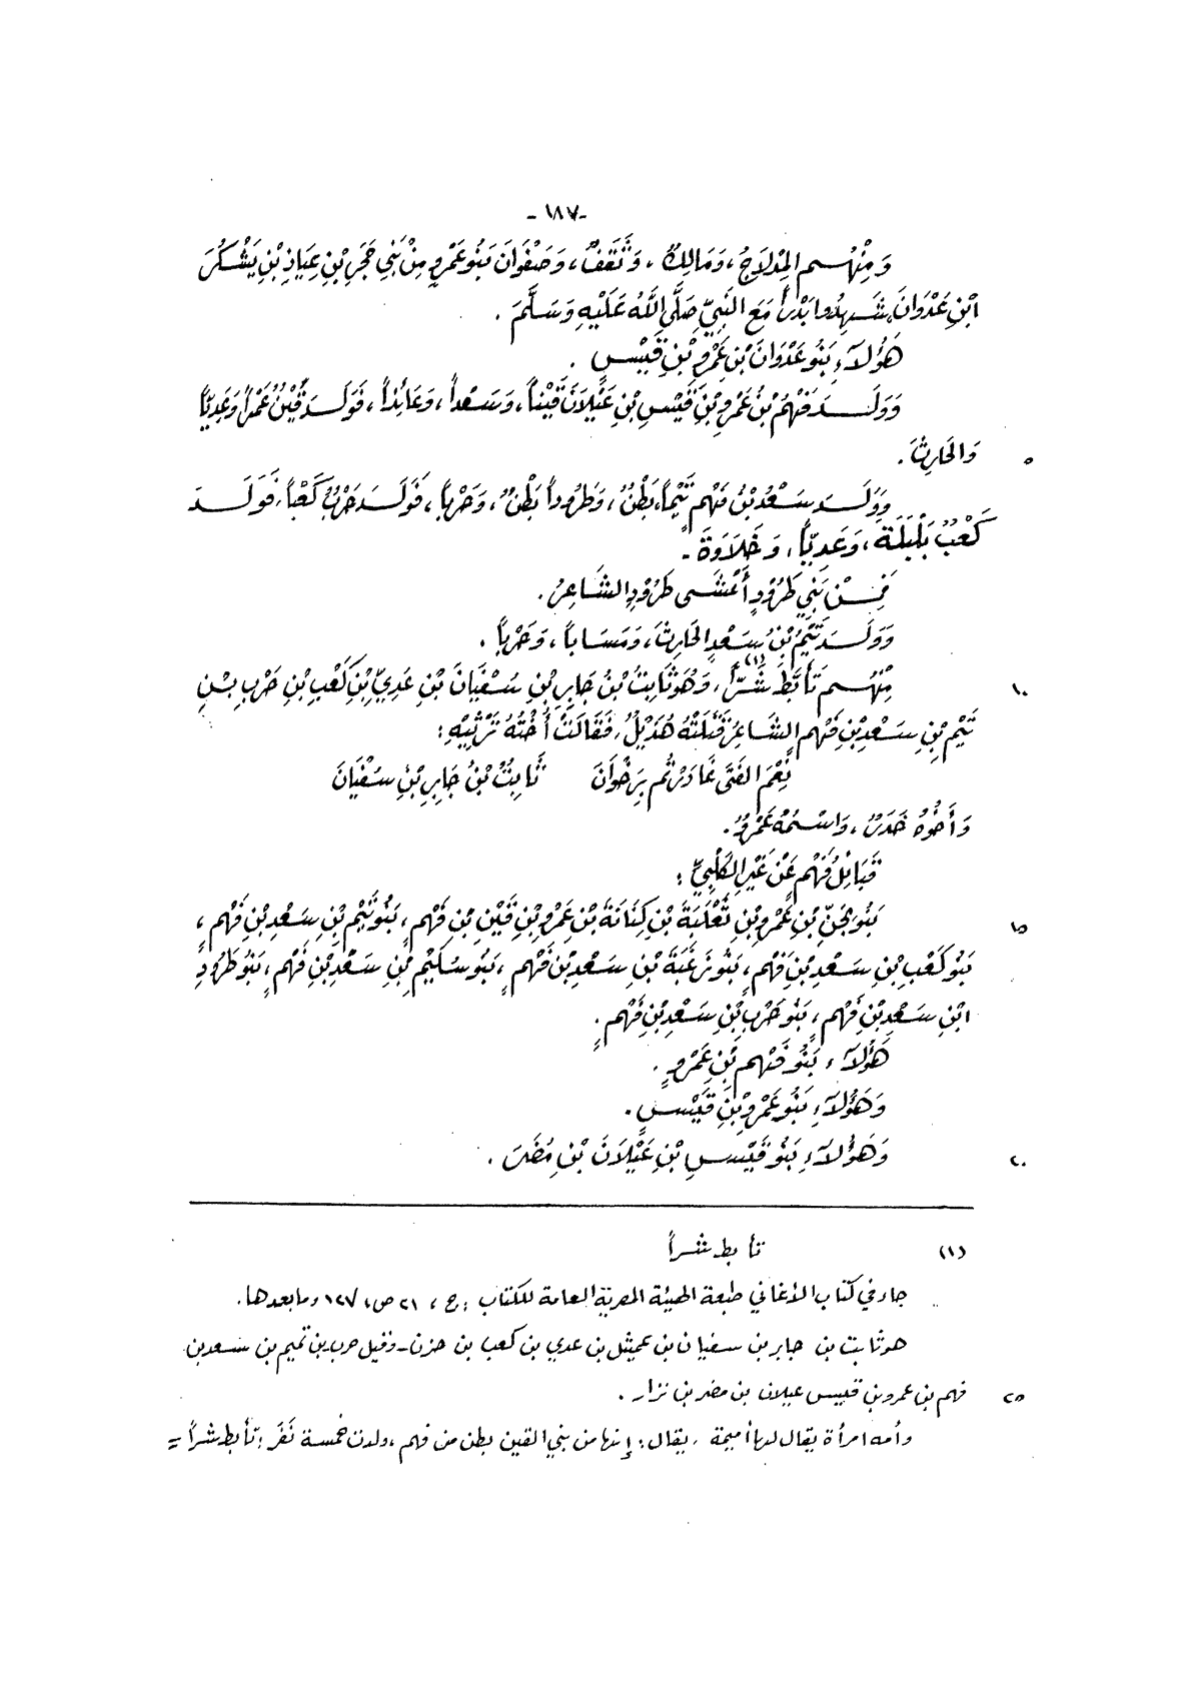 -١٨٧-
وَمِنْهُم المِدْلَاجُ، وَمَالِكٌ، وَثَقَفٌ، وَصَفْوَانَ بَنُو عَمْرٍو مِنْ بَنِي حَجَرِ بْنِ عِيَاذِ بْنِ يَشْكُرَ
ابْنِ عَدْوَانَ، شَهِدُوا بَدْراً مَعَ النَّبِيِّ صَلَّى اللهُ عَلَيْهِ وَسَلَّمَ.
هَؤُلَاءِ بَنُو عَدْوَانَ بْنِ عَمْرِو بْنِ قَيْسٍ.
وَوَلَدَ فَهْمُ بْنُ عَمْرِو بْنِ قَيْسِ بْنِ عَيْلَانَ قَيْناً، وَسَعْداً، وَعَائِذاً، فَوَلَدَ قَيْنٌ عَمْراً وَعَدِيّاً
٥ وَالحَارِثَ.
وَوَلَدَ سَعْدُ بْنُ فَهْمٍ تَيْماً، بَطْنٌ، وَطَرُوداً بَطْنٌ، وَحَرْباً، فَوَلَدَ حَرْبٌ كَعْباً، فَوَلَدَ
كَعْبٌ بَلْبَلَةَ، وَعَدِيّاً، وَخَلَاوَةَ.
فَمِنْ بَنِي طَرُودٍ أَعْشَى طَرُودٍ الشَاعِرُ.
وَوَلَدَ تَيْمُ بْنُ سَعْدٍ الحَارِثَ، وَمَسَاباً، وَحَرْباً.
١٠ مِنْهُم تَأَبَّطَ شَرّاً (١)، وَهُوَ ثَابِتُ بْنُ جَابِرِ بْنِ سُفْيَانَ بْنِ عَدِيِّ بْنِ كَعْبِ بْنِ حَرْبِ بْنِ
تَيْمِ بْنِ سَعْدِ بْنِ فَهْمٍ الشَاعِرُ قَتَلَتْهُ هُذَيْلٌ، فَقَالَتْ أُخْتُهُ تَرْثِيْهِ:
نِعْمَ الفَتَى غَادَرْتُم بِرَخْوَانَ ثَابِتُ بْنُ جَابِرِ بْنِ سُفْيَانَ
وَأَخُوهُ خَدَرٌ، وَاسْمُهُ عَمْرٌو.
قَبَائِلُ فَهْمٍ عَنْ غَيْرِ الكَلْبِيِّ:
١٥ بَنُو بَجَنِّ بْنِ عَمْرِو بْنِ ثَعْلَبَةَ بْنِ كِنَانَةَ بْنِ عَمْرِو بْنِ قَيْنِ بْنِ فَهْمٍ، بَنُو تَيْمِ بْنِ سَعْدِ بْنِ فَهْمٍ،
بَنُو كَعْبِ بْنِ سَعْدِ بْنِ فَهْمٍ، بَنُو زَغَبَةَ بْنِ سَعْدِ بْنِ فَهْمٍ، بَنُو سُلَيْمِ بْنِ سَعْدِ بْنِ فَهْمٍ، بَنُو طَرُودِ
ابْنِ سَعْدِ بْنِ فَهْمٍ، بَنُو حَرْبِ بْنِ سَعْدِ بْنِ فَهْمٍ.
هَؤُلَاءِ بَنُو فَهْمِ بْنِ عَمْرٍو.
وَهَؤُلَاءِ بَنُو عَمْرِو بْنِ قَيْسٍ.
٢٠ وَهَؤُلَاءِ بَنُو قَيْسِ بْنِ عَيْلَانَ بْنِ مُضَرَ.
(١) تأبط شراً
جاء في كتاب الأغاني طبعة الهيئة المصرية العامة للكتاب: ج، ٢١ ص، ١٢٧ وما بعدها.
هو ثابت بن جابر بن سفيان بن عميثل بن عدي بن كعب بن حزن - وقيل حرب بن تميم بن سعد بن
٢٥ فهم بن عمرو بن قيس عيلان بن مضر بن نزار.
وأمه امرأة يقال لها أميمة، يقال: إنها من بني القين بطن من فهم، ولدت خمسة نَفَر: تأبط شراً =